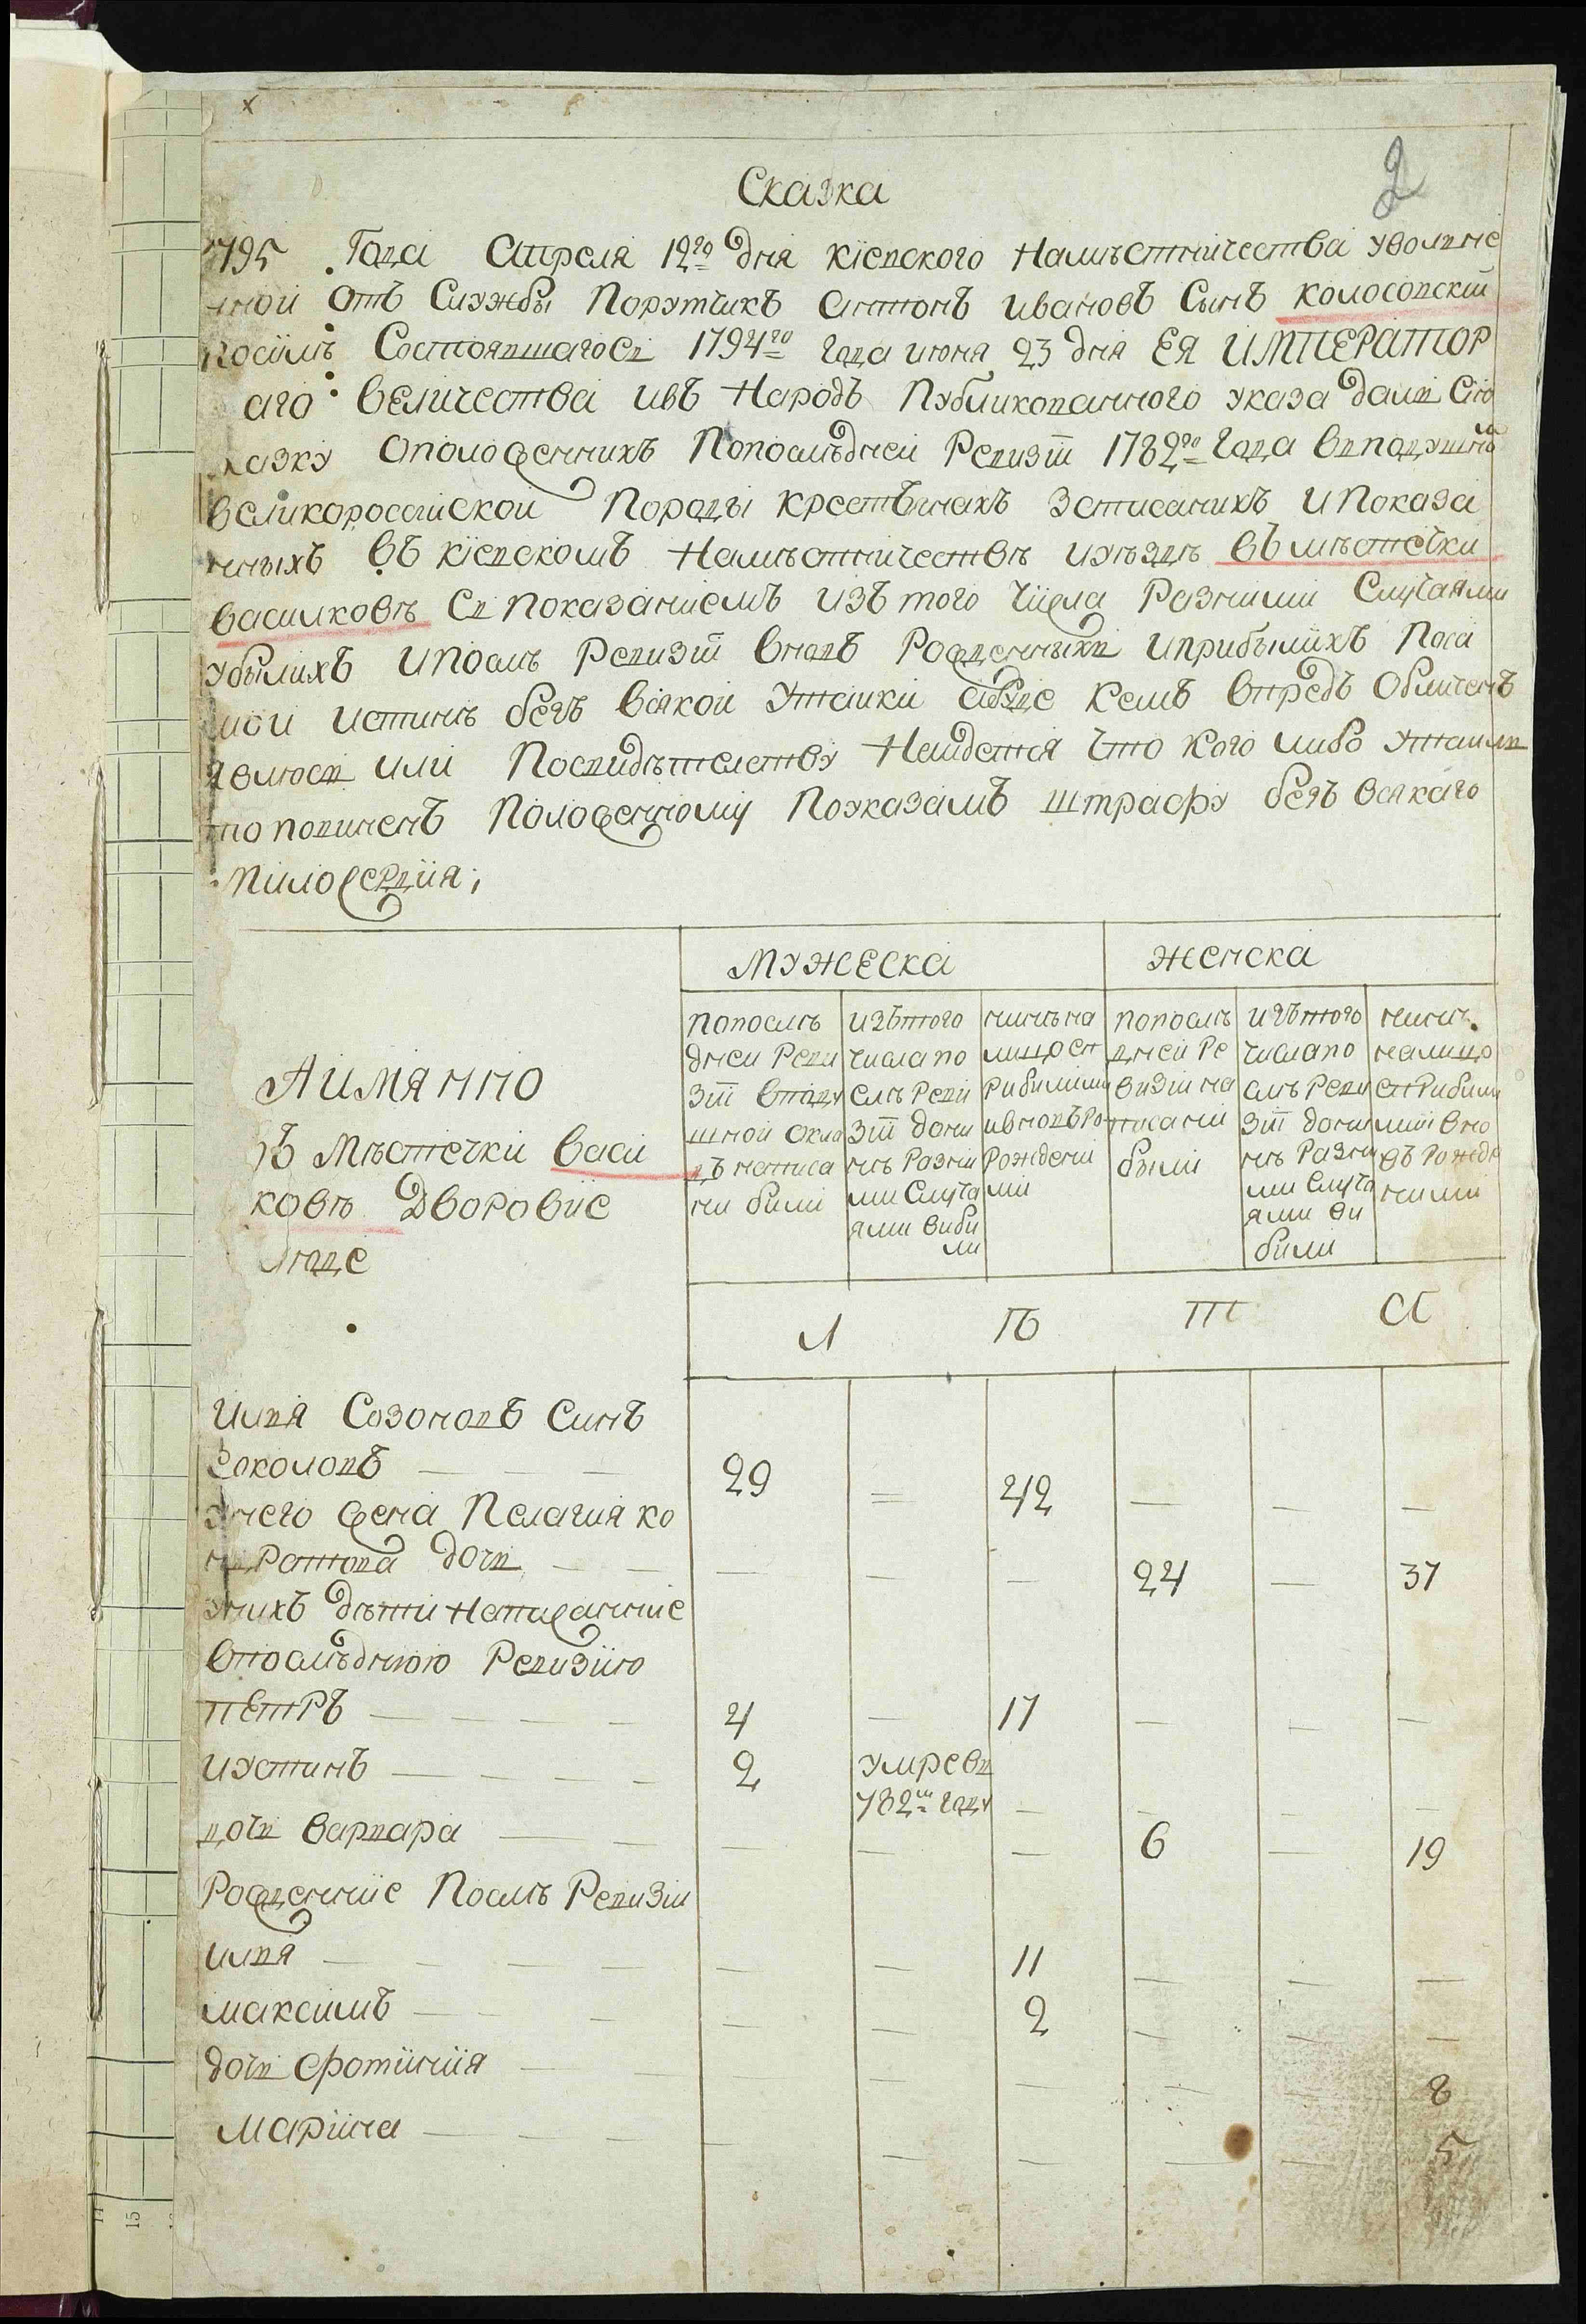 х
2
Сказка
1795 Года Апреля 12го дня Кіевского Намѣстничества уволне
ной отъ Службы Порутчикъ Антонъ Ивановъ Сынъ Колосовскій
посилѣ Состоявшагося 1794го года июня 23 дня ЕЯ ИМПЕРАТОР
аго Величества ивъ Народъ Публикованного указа далъ Сію
казку Оположенныхъ Попослѣдней Ревизіи 1782го Года вподушна
великоросийской Породы кресть̀янахъ Записанихъ и Показа
нныхъ въ Кіевскомъ Намѣстничествѣ иуѣздѣ въ мѣстечки
Василковѣ Съ Показаніемъ изъ того Числа Разними Случаями
убылихъ и Послѣ Ревизіи вновъ Рожденныхъ и прибылихъ Поса
мой истинѣ безъ всякой Утайки абуде кемъ впредъ Обличенъ
явлюсь или Посвидѣтелству Найдется Что кого либо Утаилъ
то повиненъ Положенному Поуказамъ штрафу безъ всякаго
милосердия;
Мужеска
Женска
Аимянно
Въ Мѣстечки Васи
ковѣ Дворовие
Люде
Попослѣ
дней Реви
зіи вподу
шной окла
дъ написа
ни били
изътого
числа по
слѣ Реви
зіи дони
нѣ Разни
ми Случа
ями виби
ли
нинѣ на
лицо сп
рибилими
ивновъ Ро
Рождени
ми
Попослѣ
дней Ре
визіи на
писани
были
изътого
числа по
слѣ Реви
зіи дони
нѣ Разни
ми Случа
ями ви
били
нинѣ
налицо
сприбили
ми вно
въ Рожде
ними
Л
Ѣ
Т
А
Илья Созоновъ Синъ
Соколовъ 29 = 42 — — —
Унего Жена Пелагия Ко
ндратова дочь — — — 24 — 37
Унихъ дѣти Написанние
впослѣднюю Ревизию
Петръ 4 — 17 — — —
Иустинъ 2 умре въ
782м году — — — —
дочь Варвара — — — 6 — 19
Рожденние Послѣ Ревизи
Илья — — 11 — — —
Максимъ — — 2 — — —
дочь Фотиния — — — — 8
Марина — — — — — 5